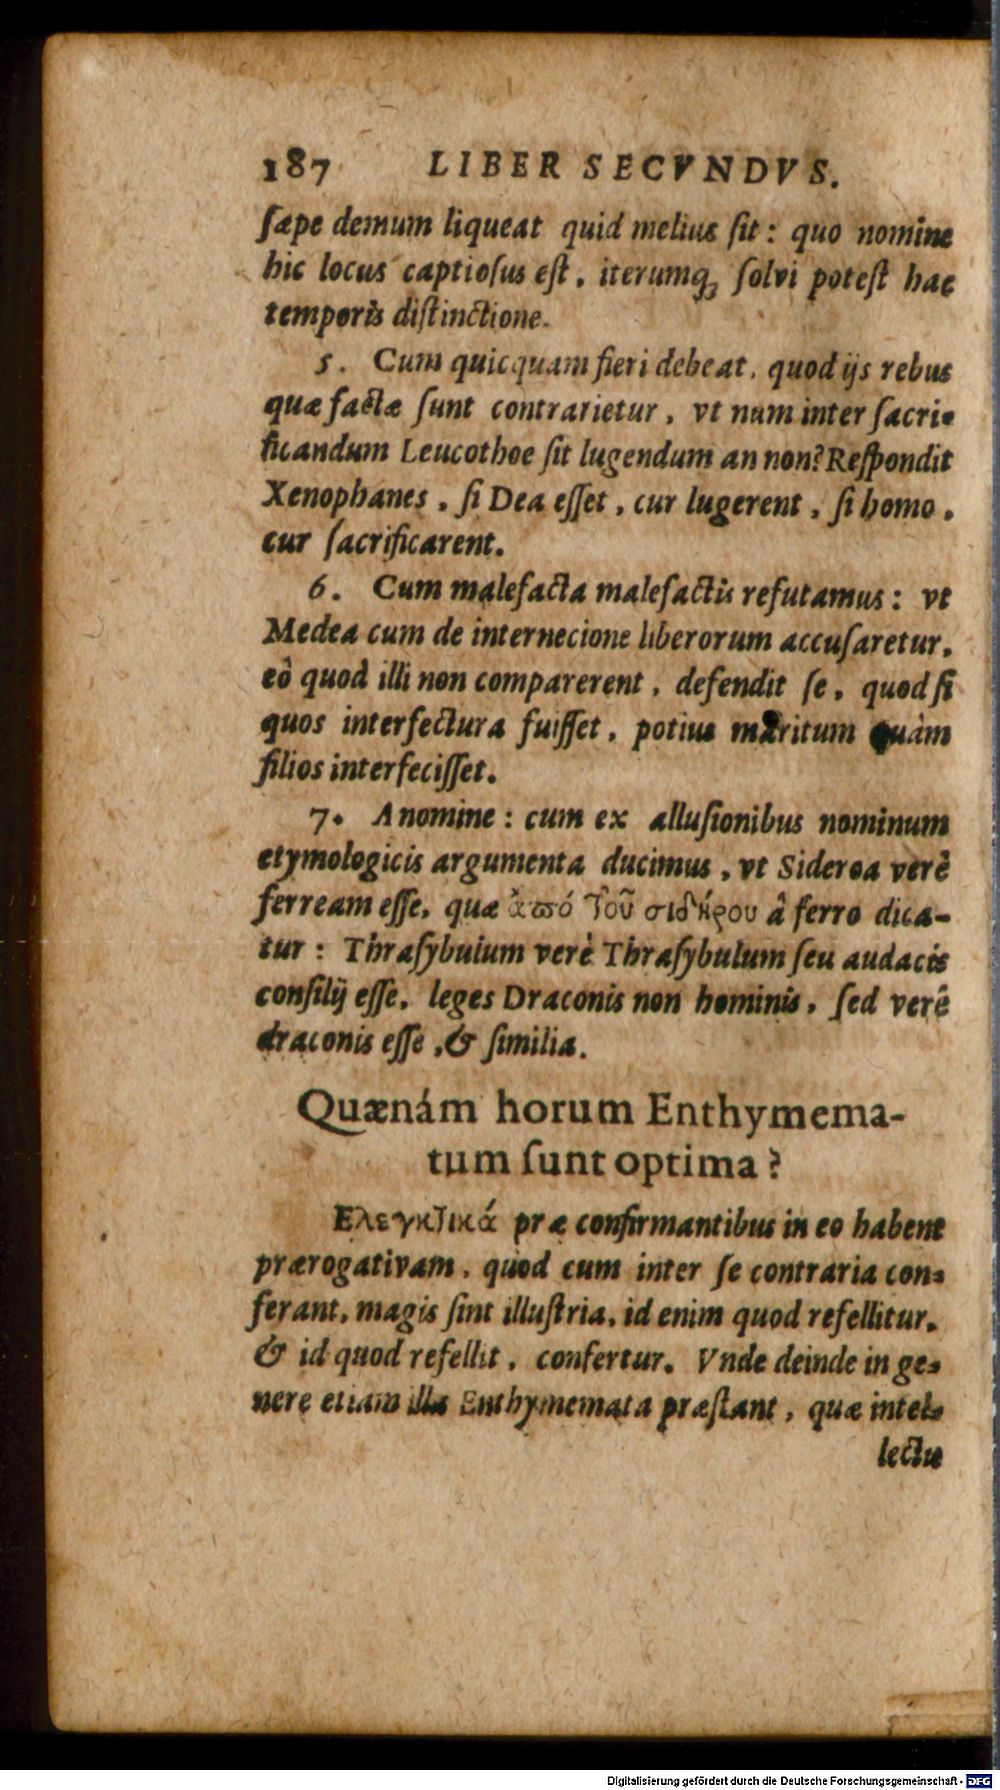 187 LIBER SECVNDVS.
ſæpe demum liqueat quid melius ſit: quo nomine
hic locus captioſus eſt, iterumq́; ſolvi poteſt hac
temporis diſtinctione.
5. Cum quicquam fieri debeat, quod ijs rebus
quæ factæ ſunt contrarietur, vt num inter ſacri-
ficandum Leucothoe ſit lugendum an non? Reſpondit
Xenophanes, ſi Dea eſſet, cur lugerent, ſi homo,
cur ſacrificarent.
6. Cum malefacta malefactis refutamus: vt
Medea cum de internecione liberorum accuſaretur,
eò quod illi non comparerent, defendit ſe, quod ſi
quos interfectura fuiſſet, potius maritum quàm
filios interfeciſſet.
7. A nomine: cum ex alluſionibus nominum
etymologicis argumenta ducimus, vt Sideroa verè
ferream eſſe, quæ ἀπό τοῦ σιδήρου â ferro dica-
tur: Thraſybuium verè Thraſybulum ſeu audacis
conſilij eſſe, leges Draconis non hominis, ſed verê
draconis eſſe, & ſimilia.
Quænám horum Enthymema-
tum ſunt optima?
Ελεγκτικά præ confirmantibus in eo habent
prærogativam, quòd cum inter ſe contraria con-
ferant, magis ſint illuſtria, id enim quod refellitur,
& id quod refellit, confertur. Vnde deinde in ge-
nere etiam illa Enthymemata præſtant, quæ intel-
lectu
Digitalisierung gefördert durch die Deutsche Forschungsgemeinschaft - DFG